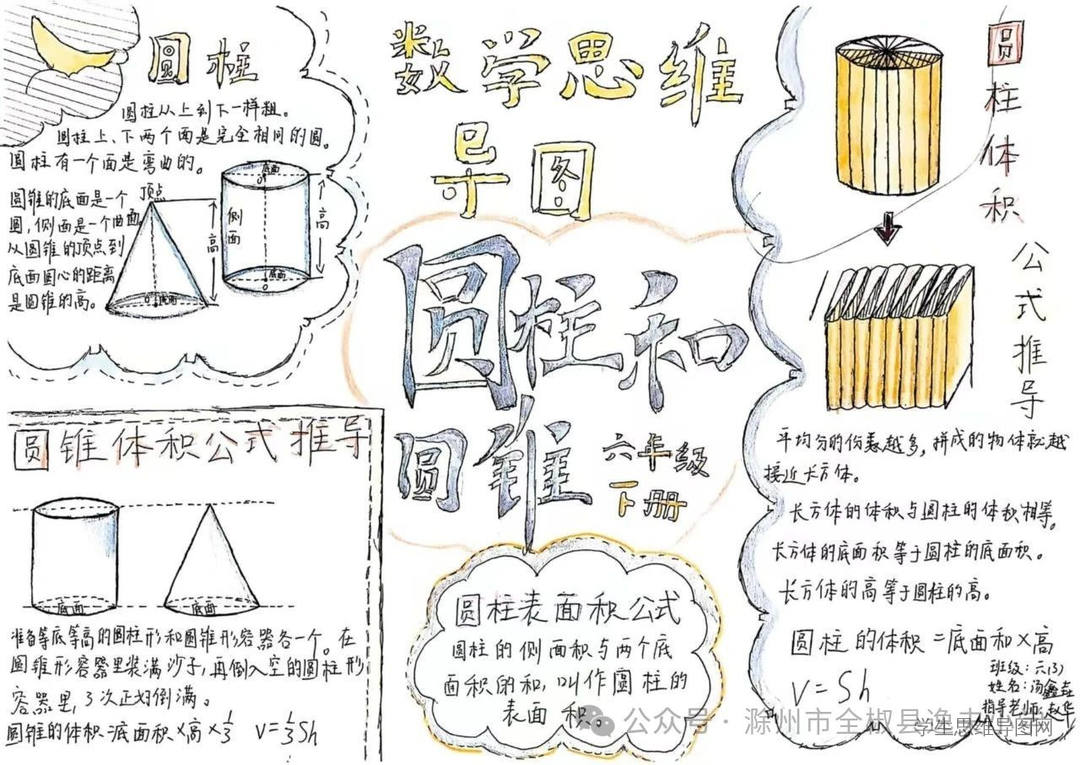 数学思维
导图
圆柱和
圆锥
六年级
下册
圆柱
圆柱从上到下一样粗。
圆柱上、下两个面是完全相同的圆。
圆柱有一个面是弯曲的。
圆锥的底面是一个
圆,侧面是一个曲面
从圆锥的顶点到
底面圆心的距离
是圆锥的高。
顶点
高
O
底面
底面
O
侧面
高
底面
O
圆锥体积公式推导
底面
底面
准备等底等高的圆柱形和圆锥形容器各一个。在
圆锥形容器里装满沙子,再倒入空的圆柱形
容器里,3次正好倒满。
圆锥的体积=底面积×高×1/3 V=1/3Sh
圆柱表面积公式
圆柱的侧面积与两个底
面积的和,叫作圆柱的
表面积
圆柱体积
公式推导
平均分的份数越多,拼成的物体就越
接近长方体。
长方体的体积与圆柱的体积相等。
长方体的底面积等于圆柱的底面积。
长方体的高等于圆柱的高。
圆柱的体积=底面积×高
V=Sh
班级:六(3)
姓名:汤
指导老师:
公众号·滁州市全椒县逸夫
学生思维导图网